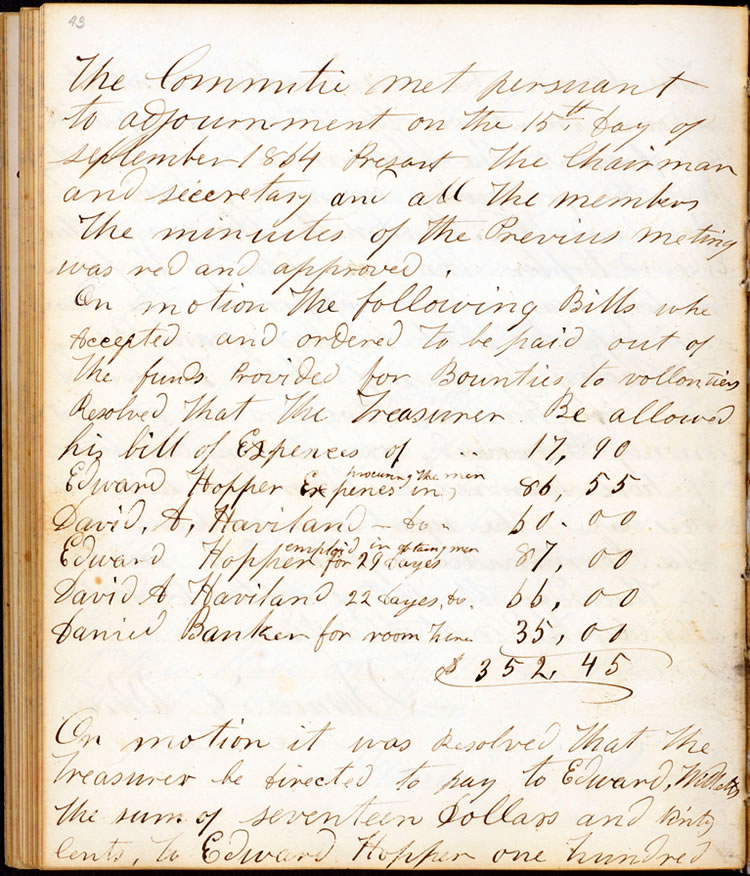 43
The Committie met persuant
to adjournment on the 15th day of
September 1864 Present the Chairman
and seccretary and all the members
The minuites of the Previus meting
was red and approved.
On motion the following Bills whe
Accepted and ordered to be paid out of
the funds Provided for Bounties to vollontiers
Resolved that the Treasurer Be allowed
his bill of Expences of .. 17,90
Edward Hopper Expences in procuring the men 86,55
David, A, Haviland - do - 60-00
Edward Hopper for 29 dayes employd in obtaing men 87 00
David A Haviland 22 dayes, do. 66,00
Daniel Banker for room 35,00
$ 352,45
On motion it was Resolved that the
Treasurer be directed to pay to Edward, Willetts
the sum of seventeen dollars and
cents, to Edward Hopper one hundred